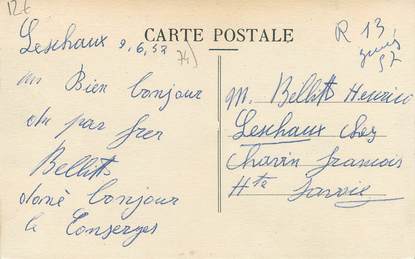 12€
CARTE POSTALE
R 13
Leschaux 9.6.52
74)
un Bien bonjour
du par frer
Bellitto
doné bonjour
le Conserges
M. Bellitto Henrico
Leschaux chez
Chavin francois
Hte Savoie